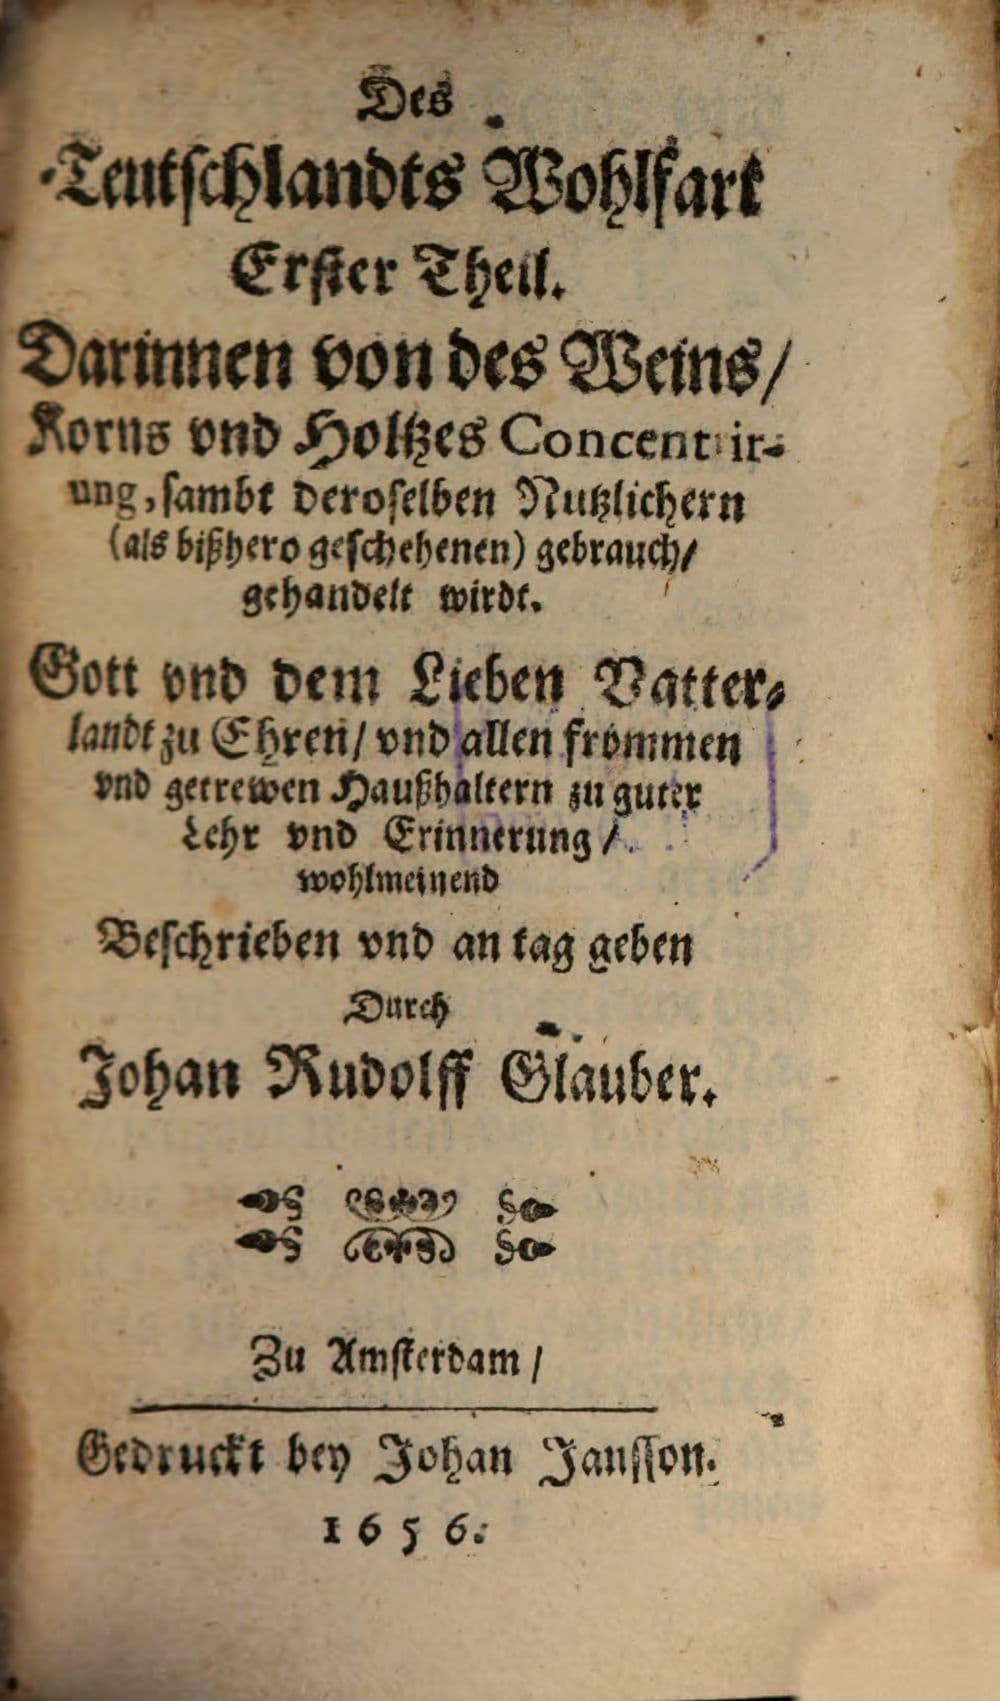 Des
Teutschlandts Wohlfart
Erster Theil.
Darinnen von des Weins/
Korns vnd Holtzes Concentrir-
ung, sambt deroselben Nutzlichern
(als bißhero geschehenen) gebrauch/
gehandelt wirdt.
Gott vnd dem Lieben Vatter-
landt zu Ehren/ vnd allen frommen
vnd getrewen Haußhaltern zu guter
Lehr vnd Erinnerung/
wohlmeinend
Beschrieben vnd an tag geben
Durch
Johan Rudolff Glauber.
Zu Amsterdam/
Gedruckt bey Johan Jansson.
1656.